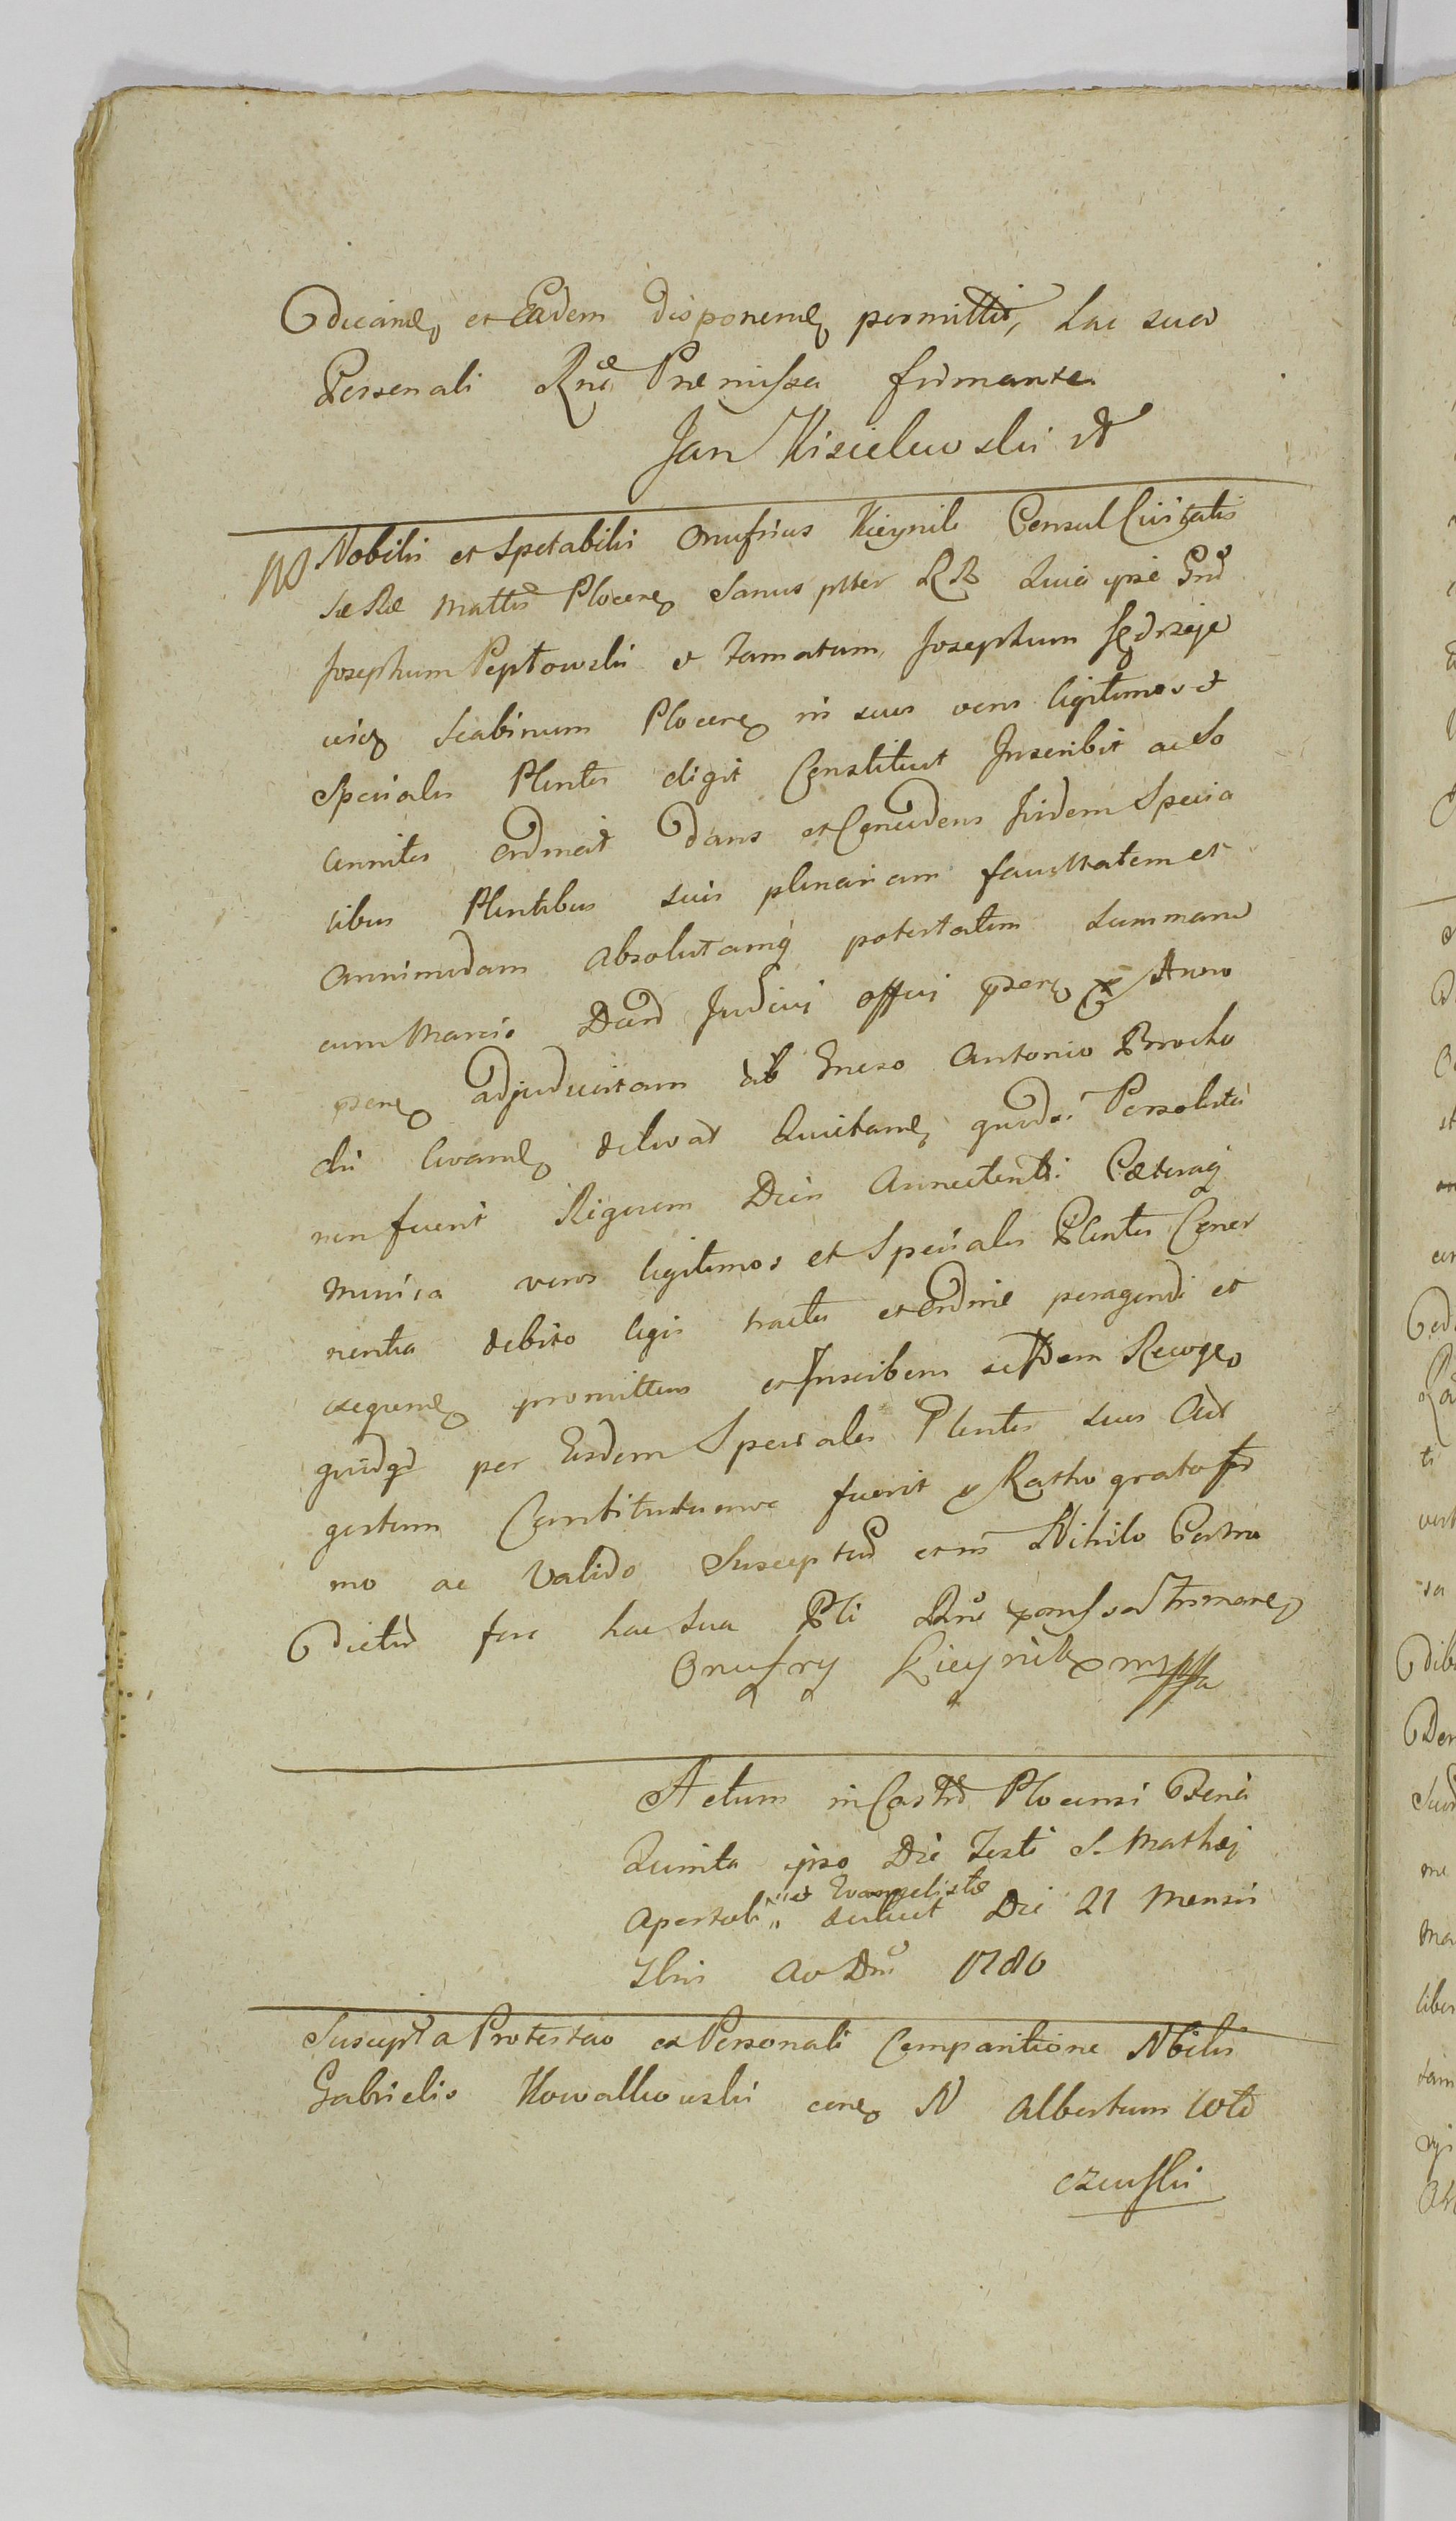 dicand, et Eadem disponend, permittit, hac sua
Personali Rne Praemissa firmante
Jan Kisielewski
Nobilis et Spetabilis Onufrius Kieynik Consul Civitatis
Sae Rae Mattis Plocen Sanus ptter RR Quia ipse Gnd
Josephum Peptowski et Famatum Josephum Jędrzeje
wicz Scabinum Plocen in suos veros legitimos et
Speciales Plentes eligit Constituit Inscribit ac So
lennites ordinat dans et Concedens Iisdem Specia
libus Plentibus suis plenariam facultatem et
omnimodam absolutamq potestatem Summam
cum Marcis Decr Judicij officij psen
psen adjudicatam ab Gneso Antonio Brocho
cki levand Quietand quod Persoluti
non fuerit Rigorem Annectent Caeteraq
munia veros legitimos et Speciales Plentes Concer
nentia debito legis tractu et ordine peragendi et
exequend promittens et Inscribens se Idem Recogn
quidqd per Eosdem Speciales Plentes suos Act
gestum Constitutumve fuerit Ratho grato fir
mo ac valido Suscepturum et in Nihilo Contra
dictur fore hac Sua Pli Rne firmand
Onufry Kieynik mppa
Actum in Castro Plocensi Feria
Quinta ipso Die Festi S. Mathaej
Apostoli et Evangelistae scilicet Die 21 Mensis
7bris Ao Dni 1780
Suscepta Protestao ex Personali Comparitione Nbilis
Gabrielis Kowallewski con N Albertum Woł
czewski